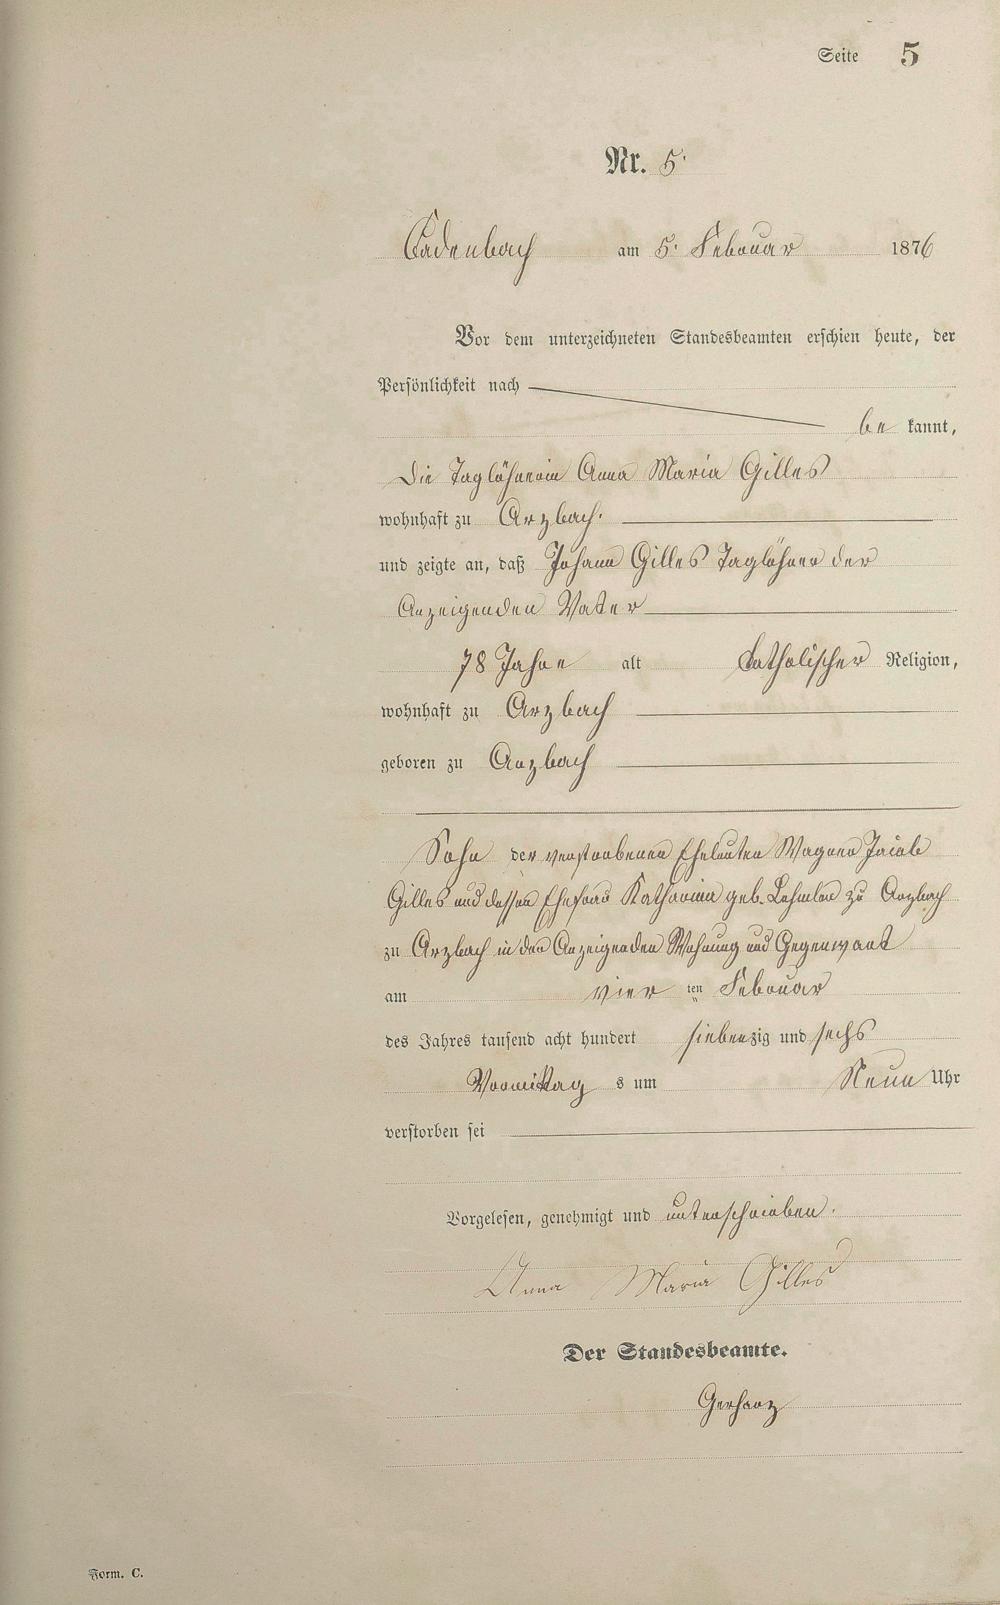 Seite 5
Nr. 5.
Cadenbach am 5. Februar 1876
Vor dem unterzeichneten Standesbeamten erschien heute, der
Persönlichkeit nach
be kannt,
Die Taglöhnerin Anna Maria Gilles
wohnhaft zu Arzbach.
und zeigte an, daß Johann Gilles Taglöhner der
Anzeigenden Vater
78 Jahre alt katholischer Religion,
wohnhaft zu Arzbach
geboren zu Arzbach
Sohn der verstorbenen Eheleuten Wagner Jacob
Gilles und dessen Ehefrau Katharina geb. zu Arzbach
zu Arzbach in der Anzeigenden Wohnung und Gegenwart
am vier ten Februar
des Jahres tausend acht hundert siebenzig und sechs
Vormittag s um Neun Uhr
verstorben sei
Vorgelesen, genehmigt und unterschrieben.
Anna Maria Gilles
Der Standesbeamte.
Gerharz
Form. C.